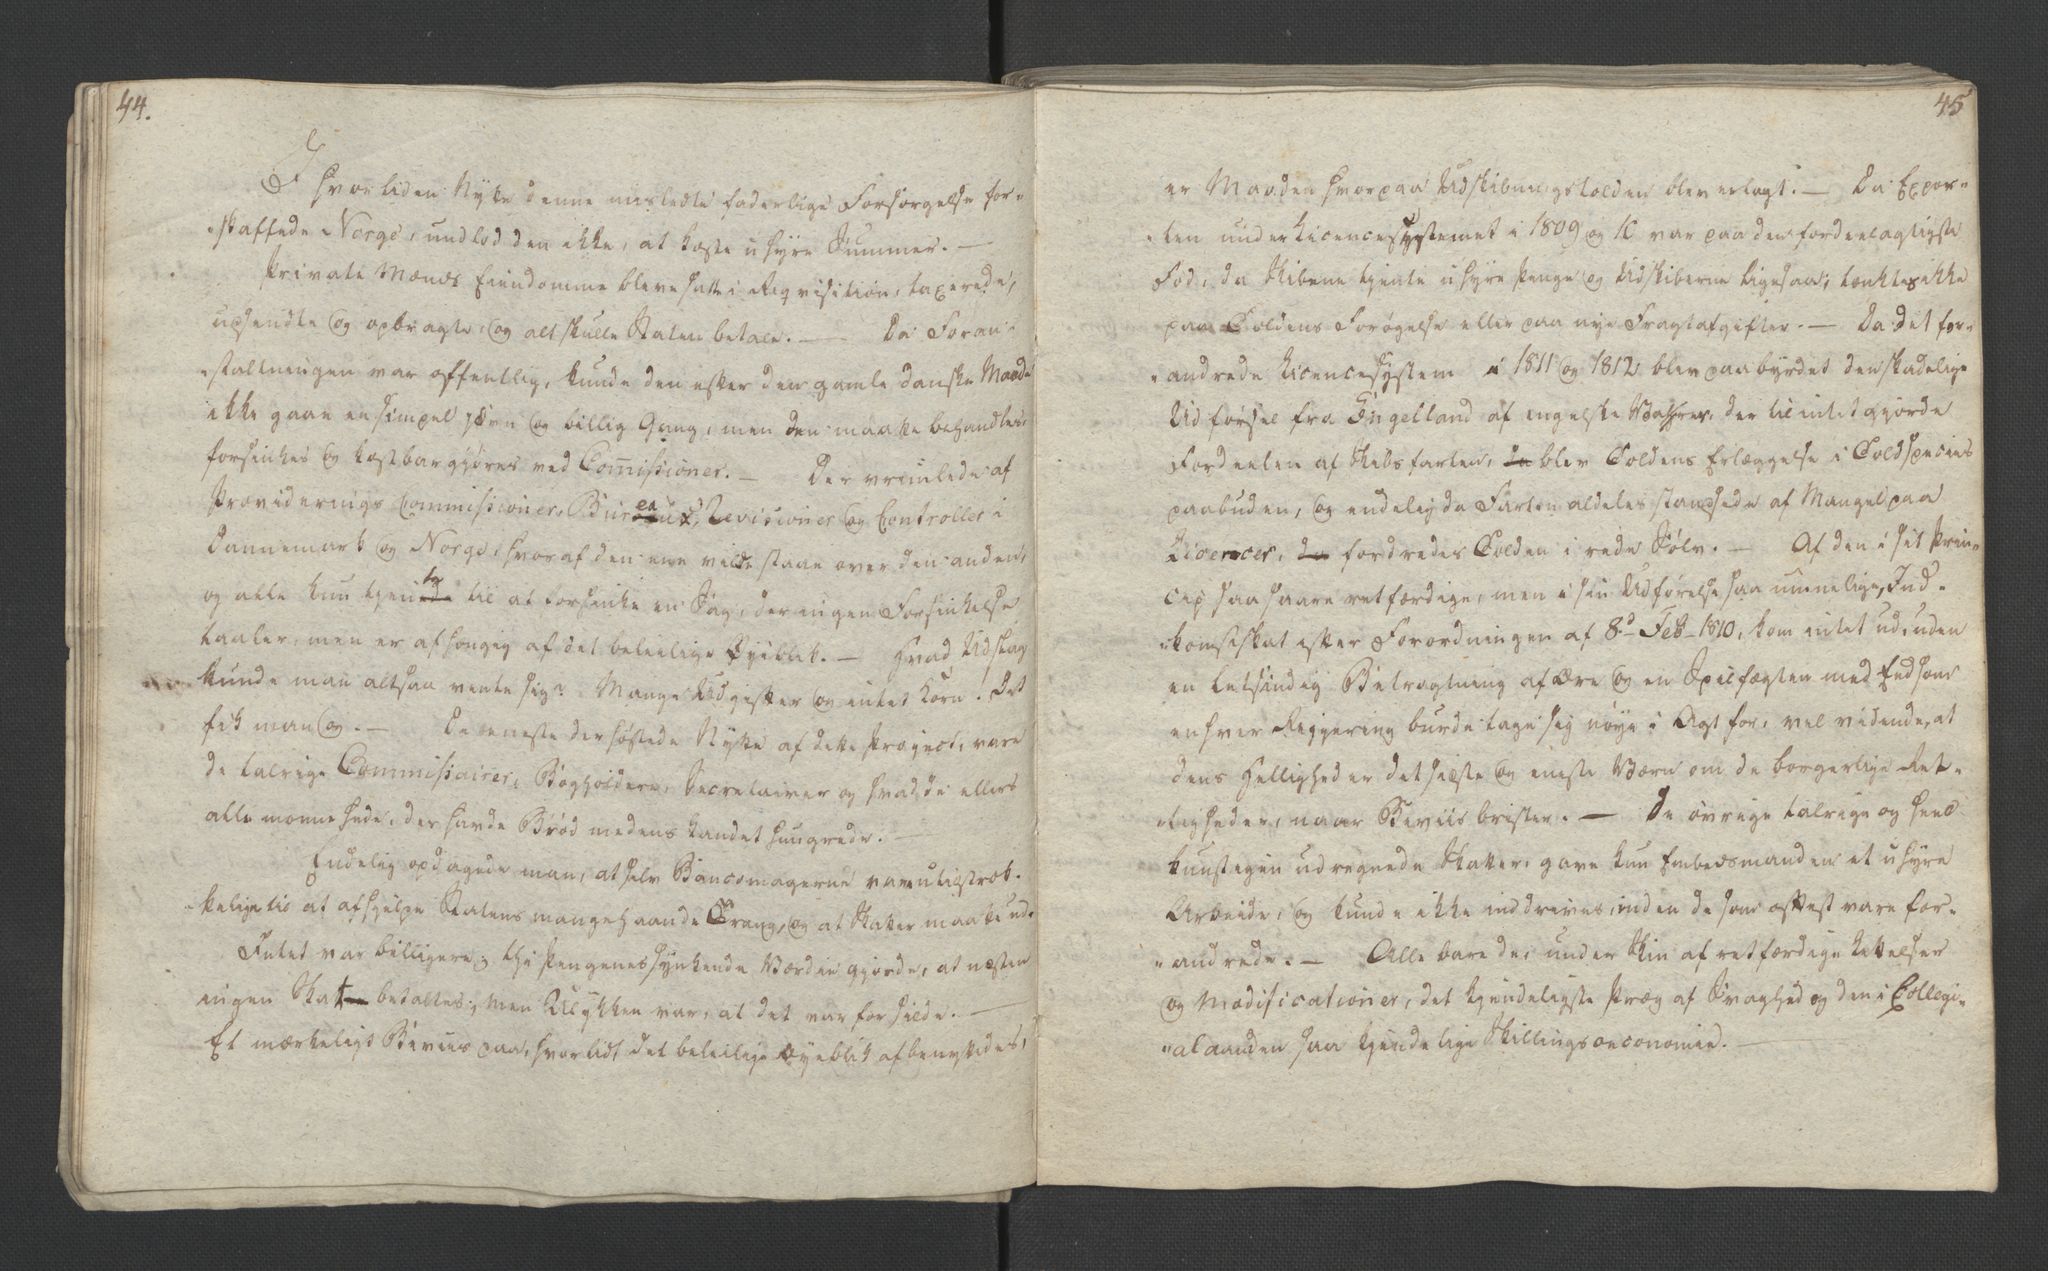 44.
I hvor liden Nytte denne misledte faderlige Forsorgelse for-
-skaffede Norge, undlod den ikke, at koste uhyre Summer. —
Private Mænds Eiendomme bleve satte i Reqvisition, taxerede,
upsendte og opbragte, og alt skulle Staten betale. — Da Foran-
-staltningen var offentlig, kunde den efter den gamle danske Maade
ikke gaae en simpel jævn og billig Gang, men den maatte behandles,
forsinkes og kostbargjøres ved Commissioner. — Der vrimlede af
Provideringscommissioner, Bureaux, Revisioner og Controller i
Dannemark og Norge, hvoraf den ene vilde staae over den anden,
og alle kun tjente til at forsinke en Sag, der ingen Forsinkelse
taaler, men er afhængig af det beleilige Øieblik. — Hvad Udslag
kunde man altsaa vente sig? Mange Udgifter og intet Korn. Det
fik man og. — De eneste der høstede Nytte af dette Project, vare
de talrige Commissairer, Bogholdere, Secretairer og hvad de ellers
alle monne hede, der havde Brød medens Landet hungrede. —
Endelig opdagede man, at selv Bancomagerne vare utilstræk-
-kelige til at afhjelpe Statens mangehaande Trang, og at Skatter maatte ud.
Intet var billigere; thi Pengenes synkende Værdie gjorde, at næsten
ingen Skat betaltes; men Ulykken var, at det var for silde. —
Et mærkeligt Beviis paa, hvor lidt det beleilige Øyeblik afbenyttedes,
45
er Maaden hvorpaa Udskibningstolden blev erlagt. — Da Expor-
-ten under Licencesystemet i 1809 og 10 var paa den fordeelagtigste
Fod, da Skibene tjente uhyre Penge og Udskiberne ligesaa; tænktes ikke
paa Toldens Forøgelse eller paa nye Fragtafgifter. — Da det for-
-andrede Licencesystem i 1811 og 1812 blev paabyrdet den skadelige
Udførsel fra Engelland af engelske Vahrer, der tilintetgjorde
Fordeelen af Skibsfarten, blev Toldens Erlæggelse i Toldspecies
paabuden, og endelig da Farten aldeles standsede af Mangel paa
Licencer, fordredes Tolden i rede Sølv. — Af den i sit Prin-
cip saa saare retfærdige, men i sin Udførelse saa umuelige, Ind-
-komstskat efter Forordningen af 8d Feb 1810, kom intet ud, uden
en letsindig Betragtning af Ære og en Spilfægten med Eed som
enhver Regjering burde tage sig nøye i Agt for, vel vidende, at
dens Hellighed er det sidste og eneste Værn om de borgerlige Ret-
-tigheder, naar Beviis brister. — De øvrige talrige og heel
kunstigen udregnede Skatter, gave kun Embedsmanden et uhyre
Arbeide, og kunde ikke inddrives, inden de som oftest vare for-
-andrede. — Alle bare de, under Skin af retfærdige Lettelser
og Modificationer, det kjendeligste Præg af Svaghed og den i Collegi-
-alaanden saa kjendelige Skillingsoeconomie. —